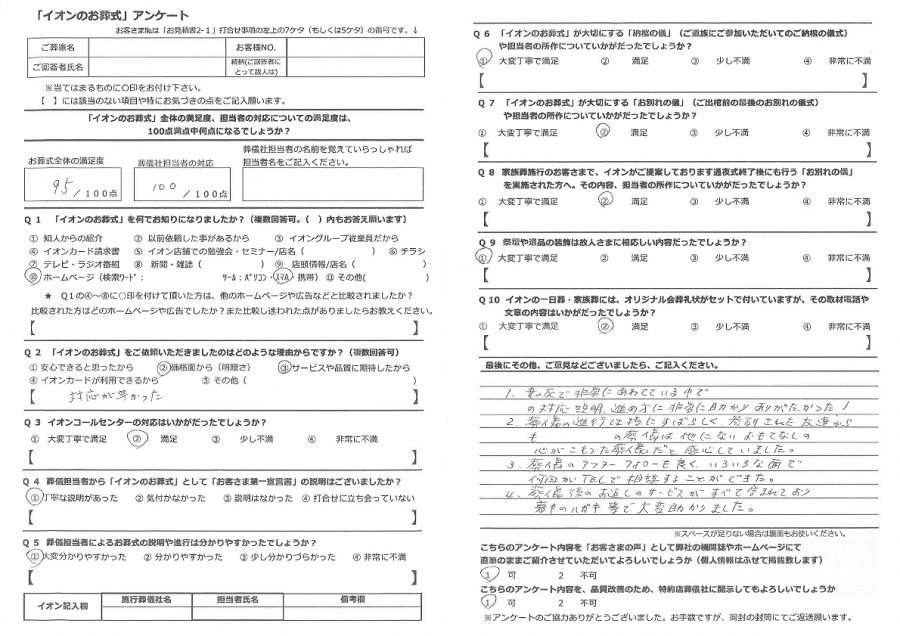 「イオンのお葬式」アンケート
お客さま№は「お見積書2-1」打合せ事項の左上の7ケタ（もしくは5ケタ）の番号です。↓
ご葬家名
お客様NO.
ご回答者氏名
続柄(ご回答者にとって故人は)
※当てはまるものに○印をお付け下さい。
【　】には該当のない項目や特にお気づきの点をご記入願います。
「イオンのお葬式」全体の満足度、担当者の対応についての満足度は、
100点満点中何点になるでしょうか？
お葬式全体の満足度
葬儀社担当者の対応
葬儀社担当者の名前を覚えていらっしゃれば
担当者名をご記入ください。
95/100点
100/100点
Q 1　「イオンのお葬式」を何でお知りになりましたか？（複数回答可。(　) 内もお答え願います）
① 知人からの紹介　② 以前依頼した事があるから　③ イオングループ従業員だから
④ イオンカード請求書　⑤ イオン店舗での勉強会・セミナー/店名（　）　⑥ チラシ
⑦ テレビ・ラジオ番組　⑧ 新聞・雑誌（　）　⑨ 店頭情報/店名（　）
⑩ ホームページ（検索ﾜｰﾄﾞ：　ﾂｰﾙ：ﾊﾟｿｺﾝ・ｽﾏﾎ・携帯）⑪ その他(　)
★ Q1の④～⑧に○印を付けて頂いた方は、他のホームページや広告などと比較されましたか？
比較された方はどのホームページや広告でしたか？また比較し迷われた点がありましたらお教えください。
【　】
Q 2　「イオンのお葬式」をご依頼いただきましたのはどのような理由からですか？（複数回答可）
① 安心できると思ったから　② 価格面から（明瞭さ）　③ サービスや品質に期待したから
④ イオンカードが利用できるから　⑤ その他（　）
【　対応が早かった　】
Q 3 イオンコールセンターの対応はいかがだったでしょうか？
①　大変丁寧で満足　②　満足　③　少し不満　④　非常に不満
【　】
Q 4　葬儀担当者から「イオンのお葬式」として「お客さま第一宣言書」の説明はございましたか？
① 丁寧な説明があった　② 気付かなかった　③ 説明はなかった　④ 打合せに立ち会っていない
【　】
Q 5　葬儀担当者によるお葬式の説明や進行は分かりやすかったでしょうか？
① 大変分かりやすかった　② 分かりやすかった　③ 少し分かりづらかった　④ 非常に不満
【　】
イオン記入欄
施行葬儀社名
担当者氏名
備考欄
Q 6　「イオンのお葬式」が大切にする「納棺の儀」（ご遺族にご参加いただいてのご納棺の儀式）
や担当者の所作についていかがだったでしょうか？
①　大変丁寧で満足　②　満足　③　少し不満　④　非常に不満
【　】
Q 7　「イオンのお葬式」が大切にする「お別れの儀」（ご出棺前の最後のお別れの儀式）
や担当者の所作についていかがだったでしょうか？
①　大変丁寧で満足　②　満足　③　少し不満　④　非常に不満
【　】
Q 8　家族葬施行のお客さまで、イオンがご提案しております通夜式終了後にも行う「お別れの儀」
を実施された方へ。その内容、担当者の所作についていかがだったでしょうか？
①　大変丁寧で満足　②　満足　③　少し不満　④　非常に不満
【　】
Q 9　祭壇や遺品の装飾は故人さまに相応しい内容だったでしょうか？
①　大変丁寧で満足　②　満足　③　少し不満　④　非常に不満
【　】
Q 10　イオンの一日葬・家族葬には、オリジナル会葬礼状がセットで付いていますが、その取材電話や
文章の内容はいかがだったでしょうか？
①　大変丁寧で満足　②　満足　③　少し不満　④　非常に不満
【　】
最後にその他、ご意見などございましたら、ご記入ください。
1、妻の死で非常にあわてている中で
の対応 説明、進め方に非常に助かりありがたかった！
2、葬儀の進行は特にすばらしく、参列された友達から
も　の葬儀は他にないおもてなしの
心がこもった葬儀だと感心していました。
3、葬儀のアフターフォローも良く、いろいろな面で
何回かTELで相談することができた。
4、葬儀後のお返しのサービスがすべて含まれており
喪中のハガキ等で大変助かりました。
※スペースが足りない場合は裏面もお使いください。
こちらのアンケート内容を「お客さまの声」として弊社の機関誌やホームページにて
直筆のままご紹介させていただいてよろしいでしょうか（個人情報はふせて掲載致します）
1　可　2　不可
こちらのアンケート内容を、品質改善のため、特約店葬儀社に開示してもよろしいでしょうか
1　可　2　不可
※アンケートのご協力ありがとうございました。お手数ですが、同封の封筒にてご返送願います。